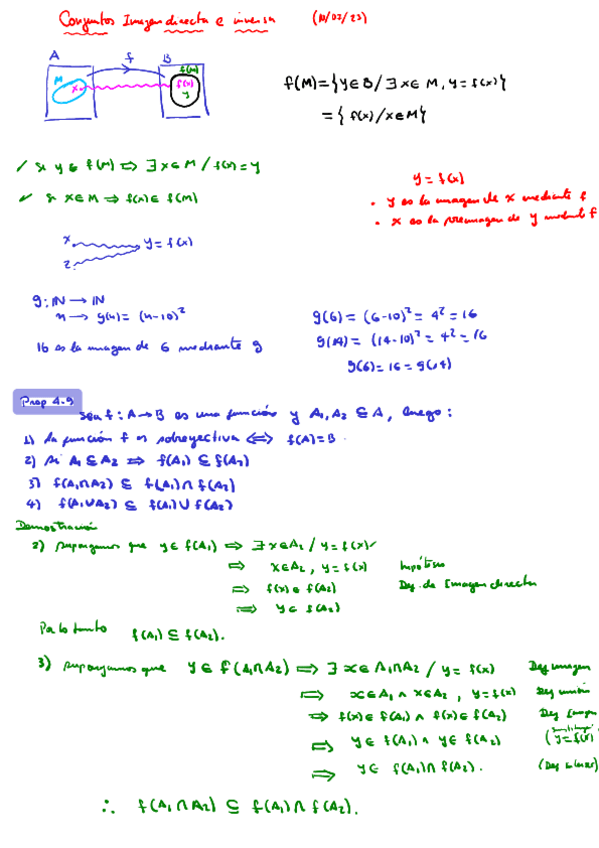 Conjuntos Imagen directa e inversa (10/03/23)
A f B
M x f(M) f(x) y
f(M) = {y ∈ B / ∃ x ∈ M, y = f(x)}
= { f(x) / x ∈ M}
✓ Si y ∈ f(M) ⇒ ∃ x ∈ M / f(x) = y
✓ Si x ∈ M ⇒ f(x) ∈ f(M)
y = f(x)
• y es la imagen de x mediante f
• x es la preimagen de y mediante f
x
y = f(x)
z
g: ℕ → ℕ
n → g(n) = (n-10)²
16 es la imagen de 6 mediante g
g(6) = (6-10)² = 4² = 16
g(14) = (14-10)² = 4² = 16
g(6) = 16 = g(14)
Prop 4.9
Sea f: A → B es una función y A₁, A₂ ⊆ A, luego:
1) La función f es sobreyectiva ⇔ f(A) = B.
2) Si A₁ ⊆ A₂ ⇒ f(A₁) ⊆ f(A₂)
3) f(A₁∩A₂) ⊆ f(A₁) ∩ f(A₂)
4) f(A₁∪A₂) ⊆ f(A₁) ∪ f(A₂)
Demostración
2) Supongamos que y ∈ f(A₁) ⇒ ∃ x ∈ A₁ / y = f(x)
⇒ x ∈ A₂, y = f(x) hipótesis
⇒ f(x) ∈ f(A₂) Def. de Imagen directa
⇒ y ∈ f(A₂)
Por lo tanto f(A₁) ⊆ f(A₂).
3) Supongamos que y ∈ f(A₁∩A₂) ⇒ ∃ x ∈ A₁∩A₂ / y = f(x) Def imagen
⇒ x ∈ A₁ ∧ x ∈ A₂, y = f(x) Def
⇒ f(x) ∈ f(A₁) ∧ f(x) ∈ f(A₂) Def Imagen
⇒ y ∈ f(A₁) ∧ y ∈ f(A₂) (y = f(x)
⇒ y ∈ f(A₁) ∩ f(A₂). (Def
∴ f(A₁∩A₂) ⊆ f(A₁) ∩ f(A₂).